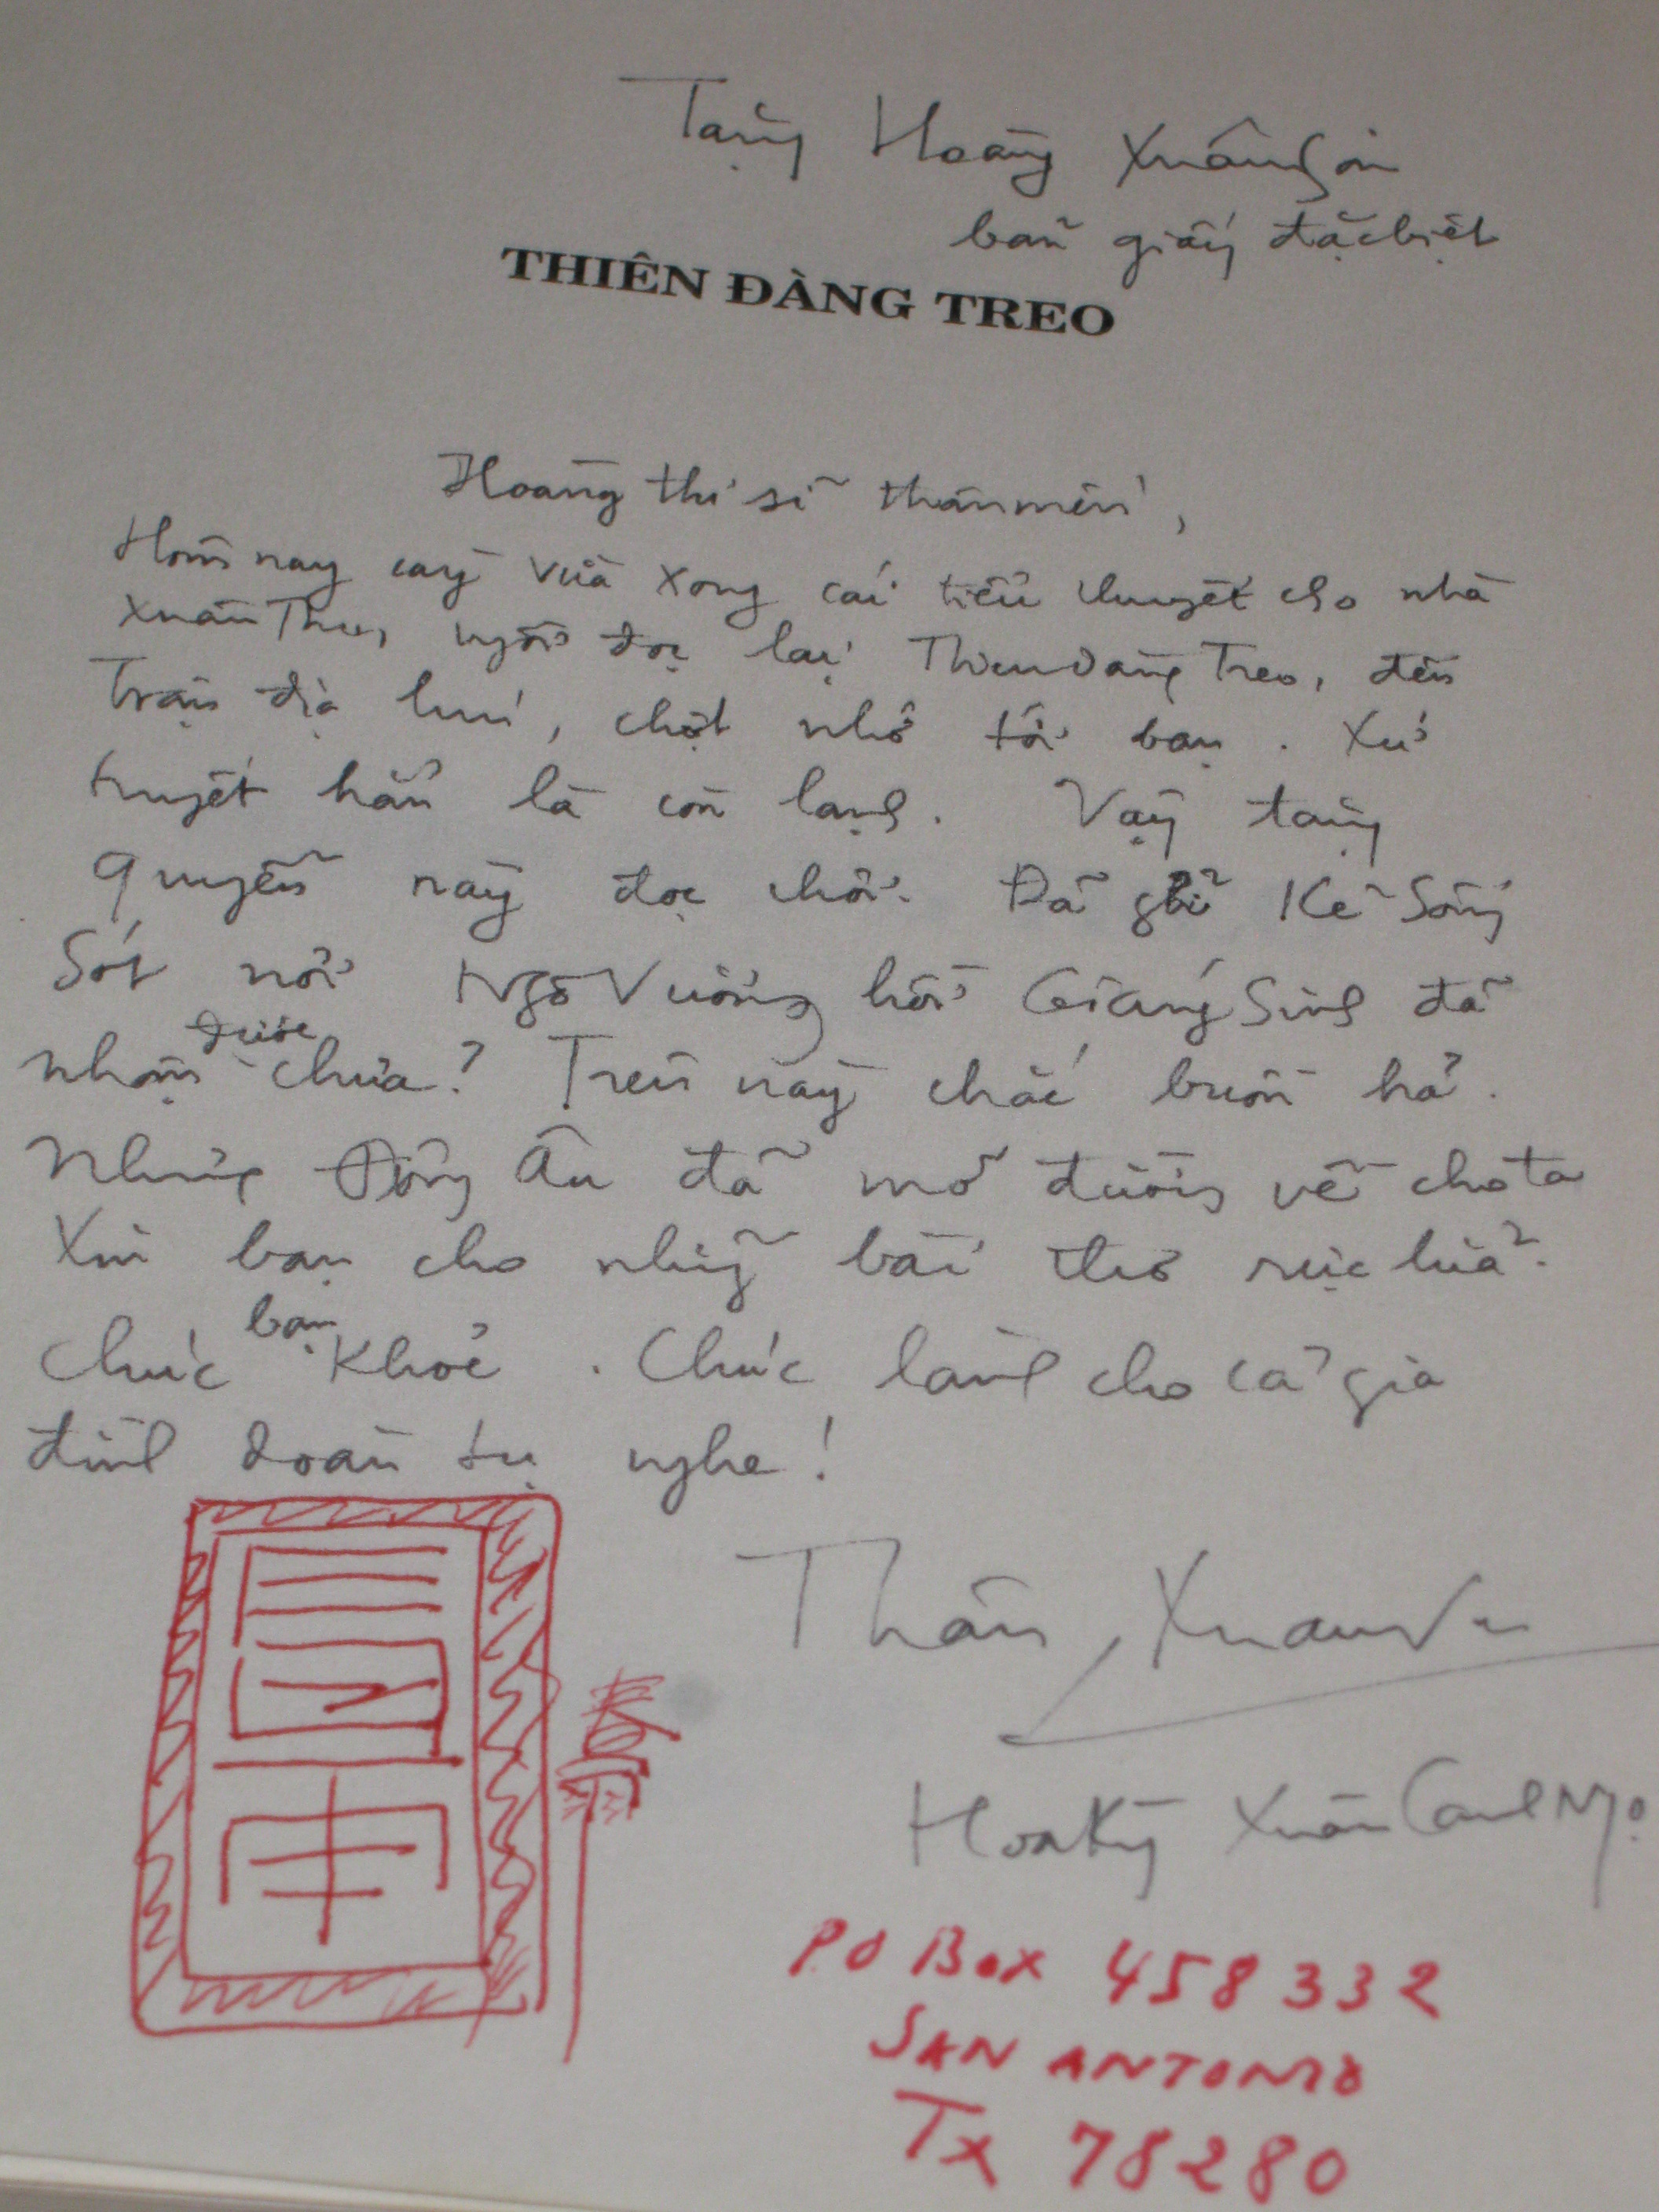 Tặng Hoàng Xuân Sơn
bản giấy đặc biệt
THIÊN ĐÀNG TREO
Hoàng thi sĩ thân mến,
Hôm nay cày vừa xong cái tiểu thuyết cho nhà
Xuân Thu, ngồi đọc lại Thiên Đàng Treo, đến
Trận địa, chợt nhớ tới bạn. Xứ
tuyết hẳn là còn lạnh. Vậy tặng
quyển này đọc chơi. Đã gởi Kẻ Sống
Sót nơi Ngô Vương hồi Giáng Sinh đã
nhận được chưa? Trên này chắc buồn hả.
Nhưng Đông Âu đã mở đường về cho ta
Xin bạn cho những bài thơ rực lửa.
Chúc bạn khỏe. Chúc lành cho cả gia
đình đoàn tụ nghe!
Thân, Xuan Vu
Hoa Kỳ Xuân Canh Ngọ
春
PO Box 458332
SAN ANTONIO
Tx 78280